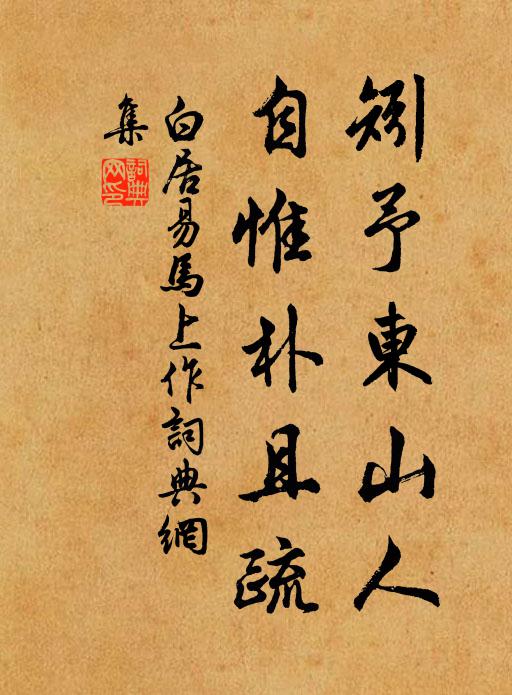 矧予東山人
自惟朴且疏
白居易馬上作詞典網
集
詞典
网印